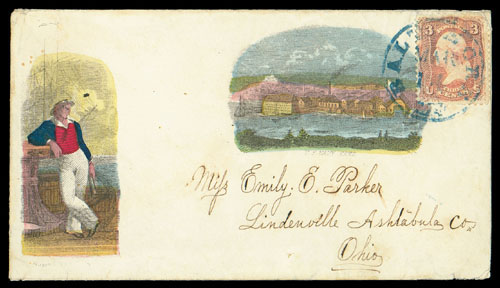 3 3
BALT
Miss Emily. E. Parker
Lindenville Ashtabula Co.
Ohio